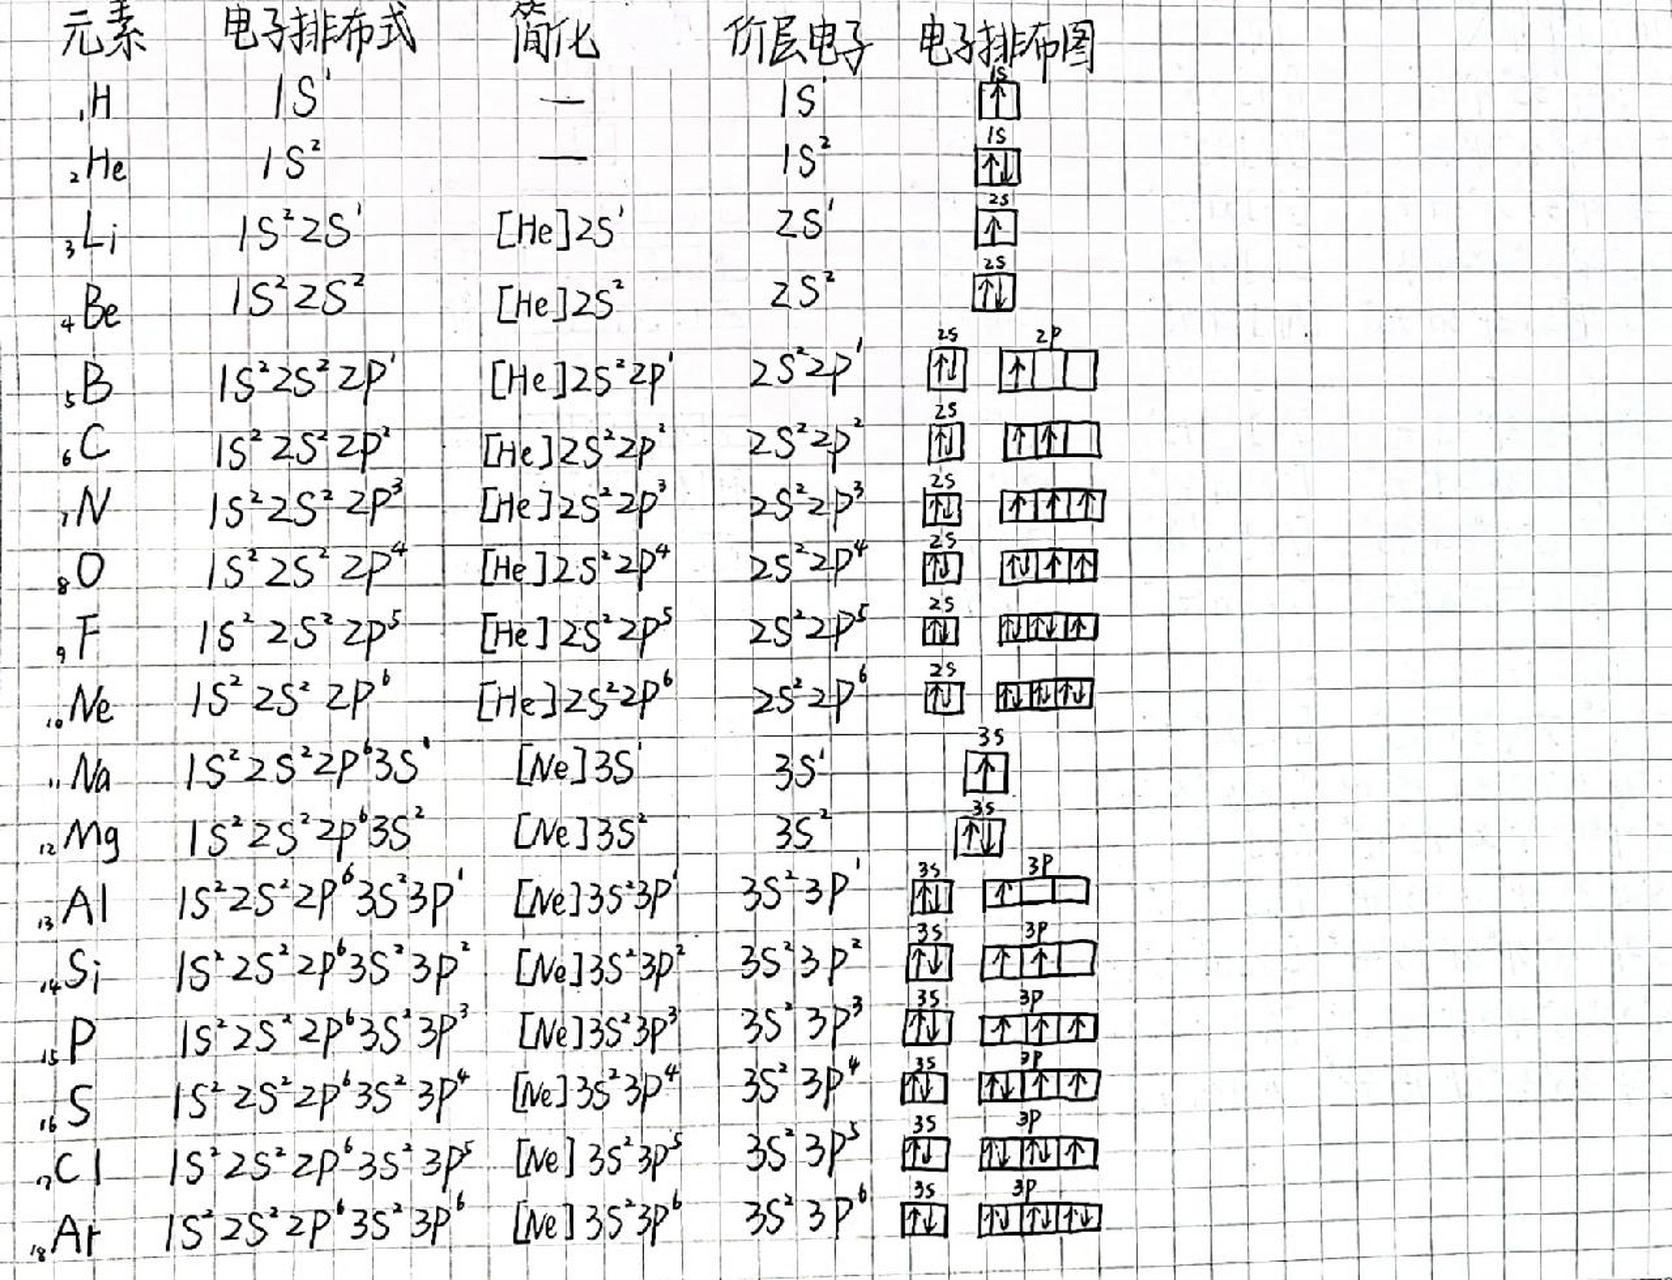 元素 电子排布式 简化 价层电子 电子排布图
₁H 1S¹ — 1S¹ 1S ↑
₂He 1S² — 1S² 1S ↑↓
₃Li 1S²2S¹ [He]2S¹ 2S¹ 2S ↑
₄Be 1S²2S² [He]2S² 2S² 2S ↑↓
₅B 1S²2S²2P¹ [He]2S²2P¹ 2S²2P¹ 2S ↑↓ 2P ↑
₆C 1S²2S²2P² [He]2S²2P² 2S²2P² 2S ↑↓ ↑ ↑
₇N 1S²2S²2P³ [He]2S²2P³ 2S²2P³ 2S ↑↓ ↑ ↑ ↑
₈O 1S²2S²2P⁴ [He]2S²2P⁴ 2S²2P⁴ 2S ↑↓ ↑↓ ↑ ↑
₉F 1S²2S²2P⁵ [He]2S²2P⁵ 2S²2P⁵ 2S ↑↓ ↑↓ ↑↓ ↑
₁₀Ne 1S²2S²2P⁶ [He]2S²2P⁶ 2S²2P⁶ 2S ↑↓ ↑↓ ↑↓ ↑↓
₁₁Na 1S²2S²2P⁶3S¹ [Ne]3S¹ 3S¹ 3S ↑
₁₂Mg 1S²2S²2P⁶3S² [Ne]3S² 3S² 3S ↑↓
₁₃Al 1S²2S²2P⁶3S²3P¹ [Ne]3S²3P¹ 3S²3P¹ 3S ↑↓ 3P ↑
₁₄Si 1S²2S²2P⁶3S²3P² [Ne]3S²3P² 3S²3P² 3S ↑↓ 3P ↑ ↑
₁₅P 1S²2S²2P⁶3S²3P³ [Ne]3S²3P³ 3S²3P³ 3S ↑↓ 3P ↑ ↑ ↑
₁₆S 1S²2S²2P⁶3S²3P⁴ [Ne]3S²3P⁴ 3S²3P⁴ 3S ↑↓ 3P ↑↓ ↑ ↑
₁₇Cl 1S²2S²2P⁶3S²3P⁵ [Ne]3S²3P⁵ 3S²3P⁵ 3S ↑↓ 3P ↑↓ ↑↓ ↑
₁₈Ar 1S²2S²2P⁶3S²3P⁶ [Ne]3S²3P⁶ 3S²3P⁶ 3S ↑↓ 3P ↑↓ ↑↓ ↑↓